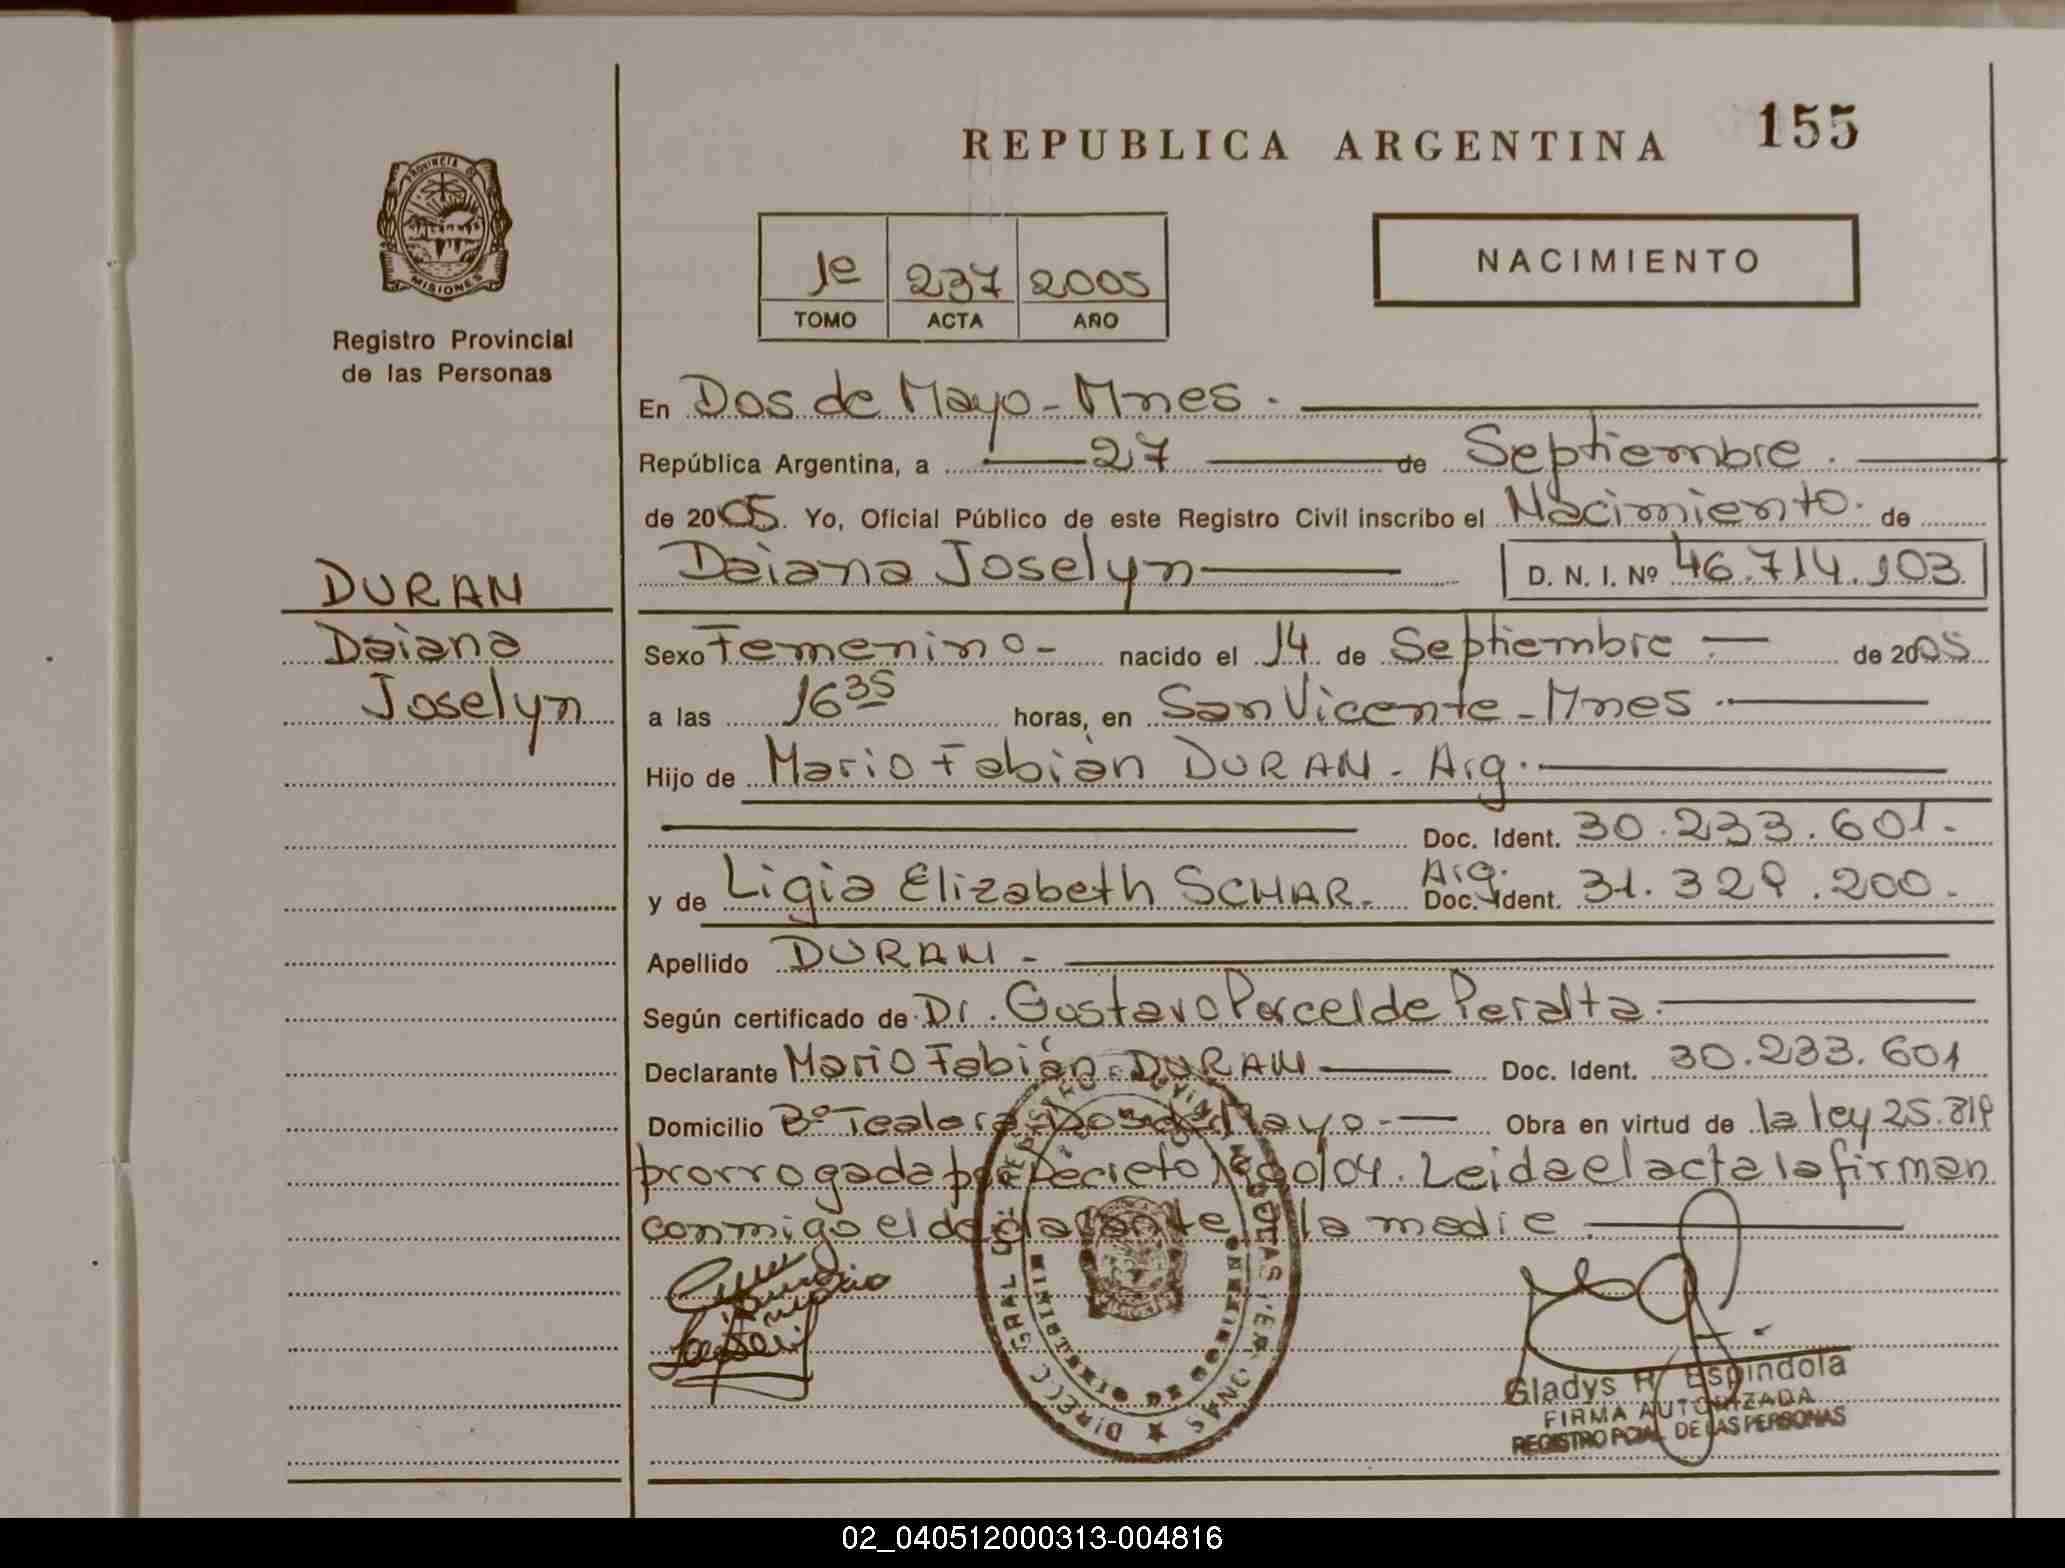 REPUBLICA ARGENTINA 155
PROVINCIA DE
MISIONES
Registro Provincial
de las Personas
1º 237 2005
TOMO ACTA AÑO
NACIMIENTO
En Dos de Mayo - Mnes.
República Argentina, a 27 de Septiembre.
de 2005. Yo, Oficial Público de este Registro Civil inscribo el Nacimiento. de
Daiana Joselyn D. N. I. Nº 46.714.103
DURAN
Daiana
Joselyn
Sexo Femenino- nacido el 14 de Septiembre - de 2005
a las 16 35 horas, en San Vicente - Mnes.
Hijo de Mario Fabián DURAN - Arg.
Doc. Ident. 30.233.601.-
y de Ligia Elizabeth SCHAR.- Arg. Doc. Ident. 31.329.200.-
Apellido DURAN -
Según certificado de Dr. Gustavo Porcel de Peralta.
Declarante Mario Fabián DURAN Doc. Ident. 30.233.601
Domicilio Bº Tealera Dos de Mayo.- Obra en virtud de la ley 25.819
prorrogada por Decreto /04. Leida el acta la firman
conmigo el declarante la madre.
DIRECC GRAL DEL REGISTRO PROVINCIAL DE LAS PERSONAS
MINISTERIO DE GOBIERNO
Gladys R Espindola
FIRMA AUTORIZADA
REGISTRO PCIAL DE LAS PERSONAS
02_040512000313-004816